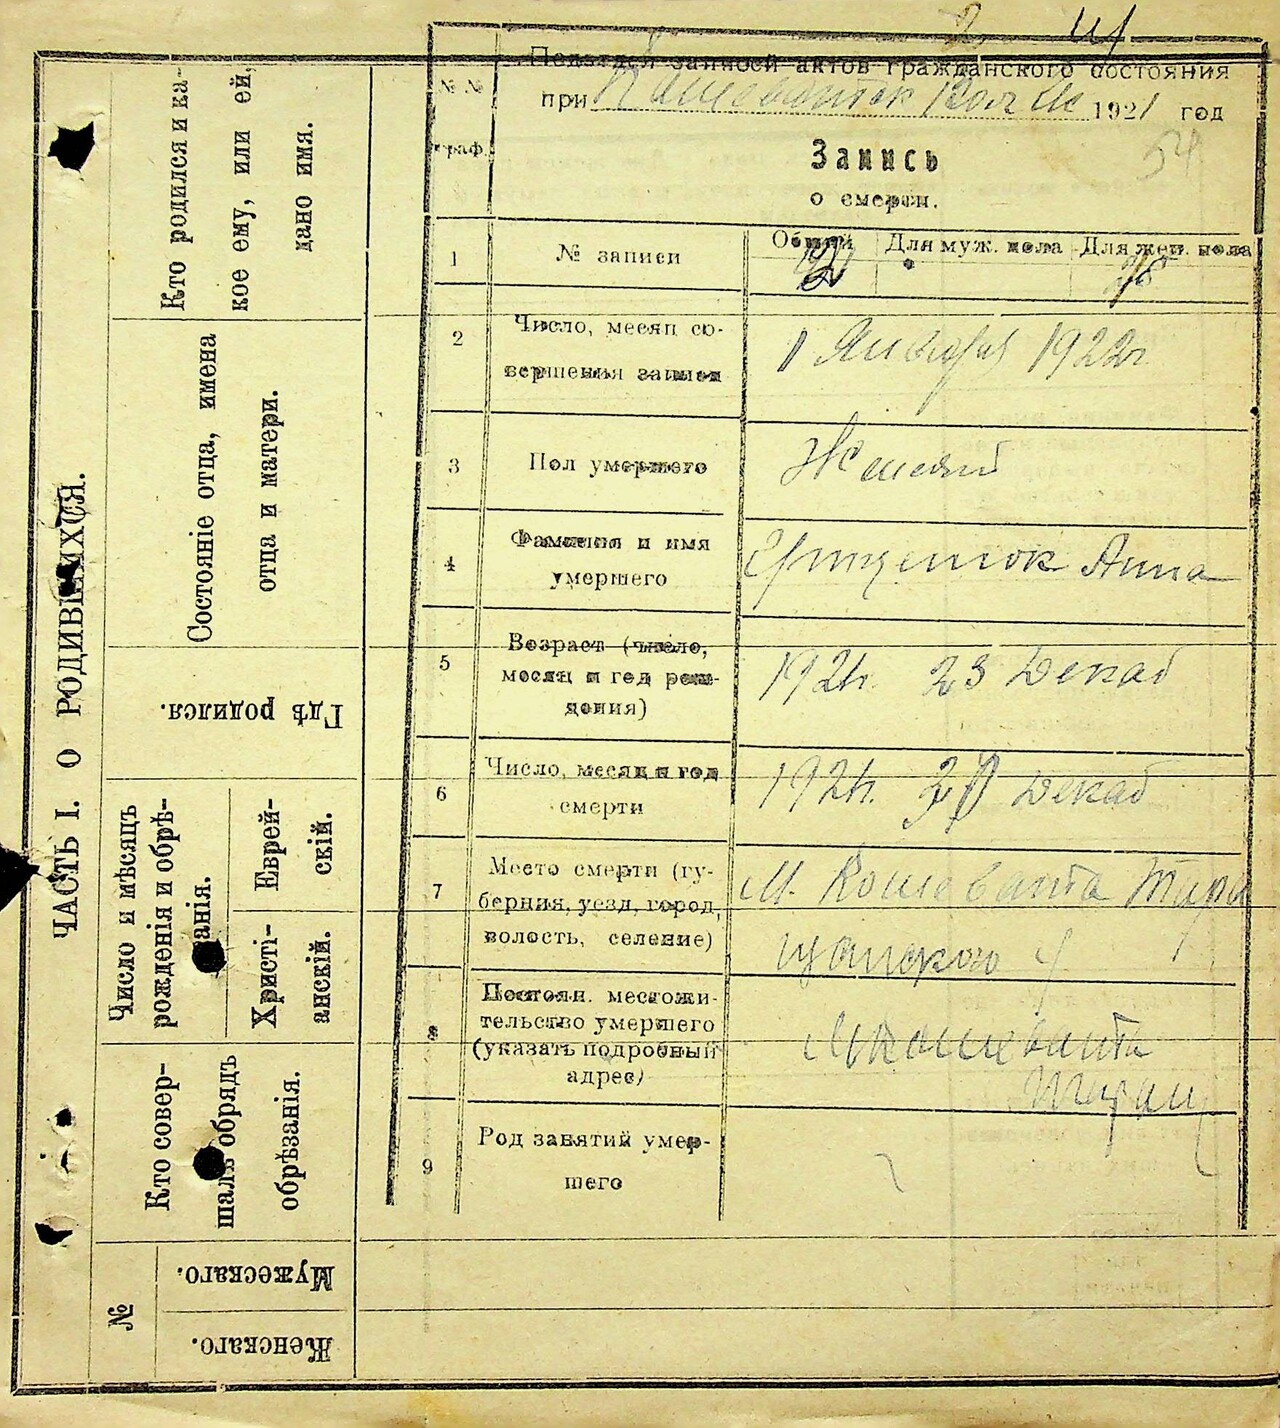 ЧАСТЬ I. О РОДИВШИХСЯ.
Кто родился и ка-
кое ему, или ей,
дано имя.
Состояніе отца, имена
отца и матери.
Гдѣ родился.
Число и мѣсяцъ
рожденія и обрѣ-
занія.
Еврей-
скій.
Христі-
анскій.
Кто совер-
шалъ обрядъ
обрѣзанія.
№
Мужескаго.
Женскаго.
Подотдел записей актов гражданского состояния
при 1921 год
54
№ №
граф.
Запись
о смерти.
1
№ записи
Общий
Для муж. пола
Для жен. пола
2
Число, месяц со-
вершения записи
1 Января 1922г.
3
Пол умершего
Женский
4
Фамилия и имя
умершего
Гриценюк Анна
5
Возраст (число,
месяц и год рож-
дения)
1921г. 23 Декаб
6
Число, месяц и год
смерти
1921г. Декаб
7
Место смерти (гу-
берния, уезд, город,
волость, селение)
М. Кошевата Тара
щанского у
8
Постоян. местожи-
тельство умершего
(указать подробный
адрес)
М Кошевата
Таращ
9
Род занятий умер-
шего